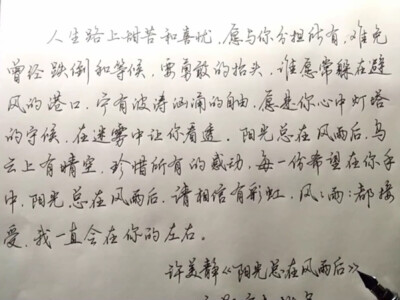 人生路上甜苦和喜忧，愿与你分担所有，难免
曾经跌倒和等候，要勇敢的抬头，谁愿常躲在避
风的港口，宁有波涛汹涌的自由，愿是你心中灯塔
的守候，在迷雾中让你看透，阳光总在风雨后，乌
云上有晴空，珍惜所有的感动，每一份希望在你手
中，阳光总在风雨后，请相信有彩虹，风风雨雨都接
受，我一直会在你的左右。
许美静《阳光总在风雨后》